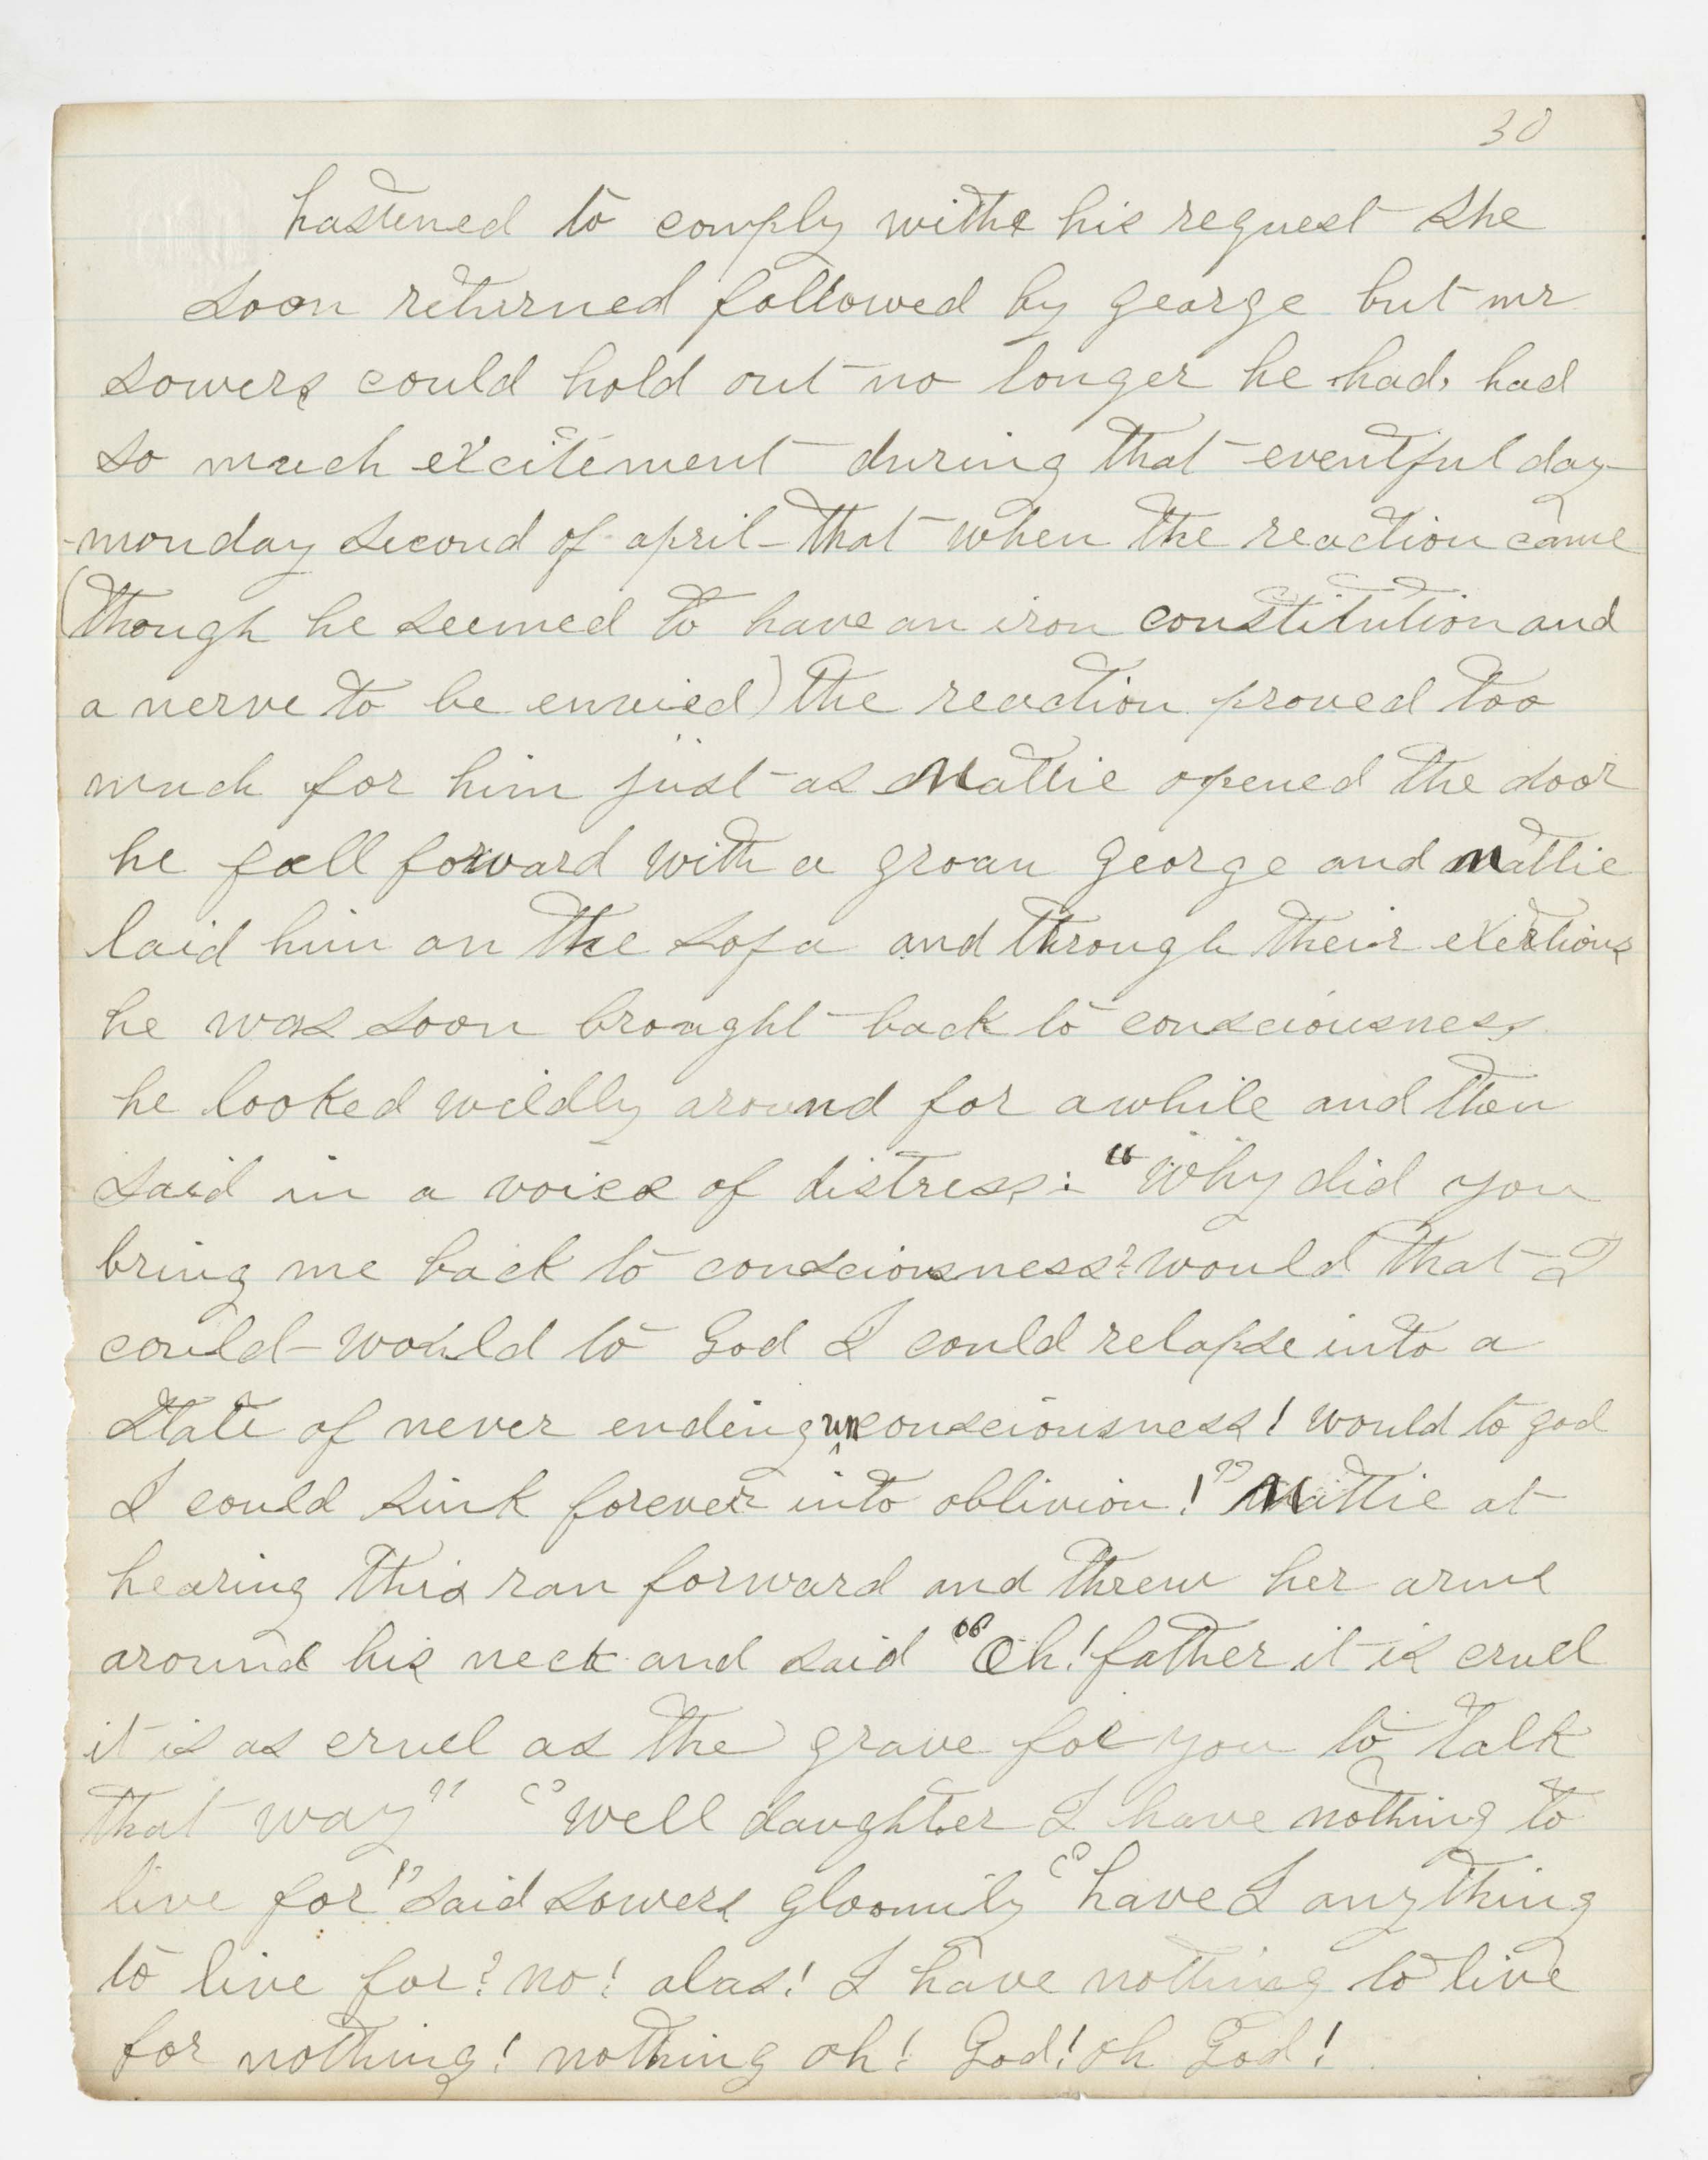 30
hastened to comply withe his request She
soon returned followed by george but mr
sowers could hold out no longer he had, had
so much excitement during that eventful day
-monday second of april-that when the reaction came
(though he seemed to have an iron constitution and
a nerve to be envied) the reaction proved too
much for him just as Mattie opened the door
he fell forward with a groan george and Mattie
laid him on the sofa and through their exertions
he was soon brought back to consciousness
he looked wildly around for awhile and then
said in a voice of distress: "Why did you
bring me back to consciousness? would that I
could-would to God I could relapse into a
state of never ending unconsciousness! would to god
I could sink forever into oblivion!" Mattie at
hearing this ran forward and threw her arms
around his neck and said "Oh! father it is cruel
it is as cruel as the grave for you to talk
that way" "well daughter I have nothing to
live for" said sowers gloomily "have I anything
to live for? no! alas! I have nothing to live
for nothing! nothing oh! God! oh God!